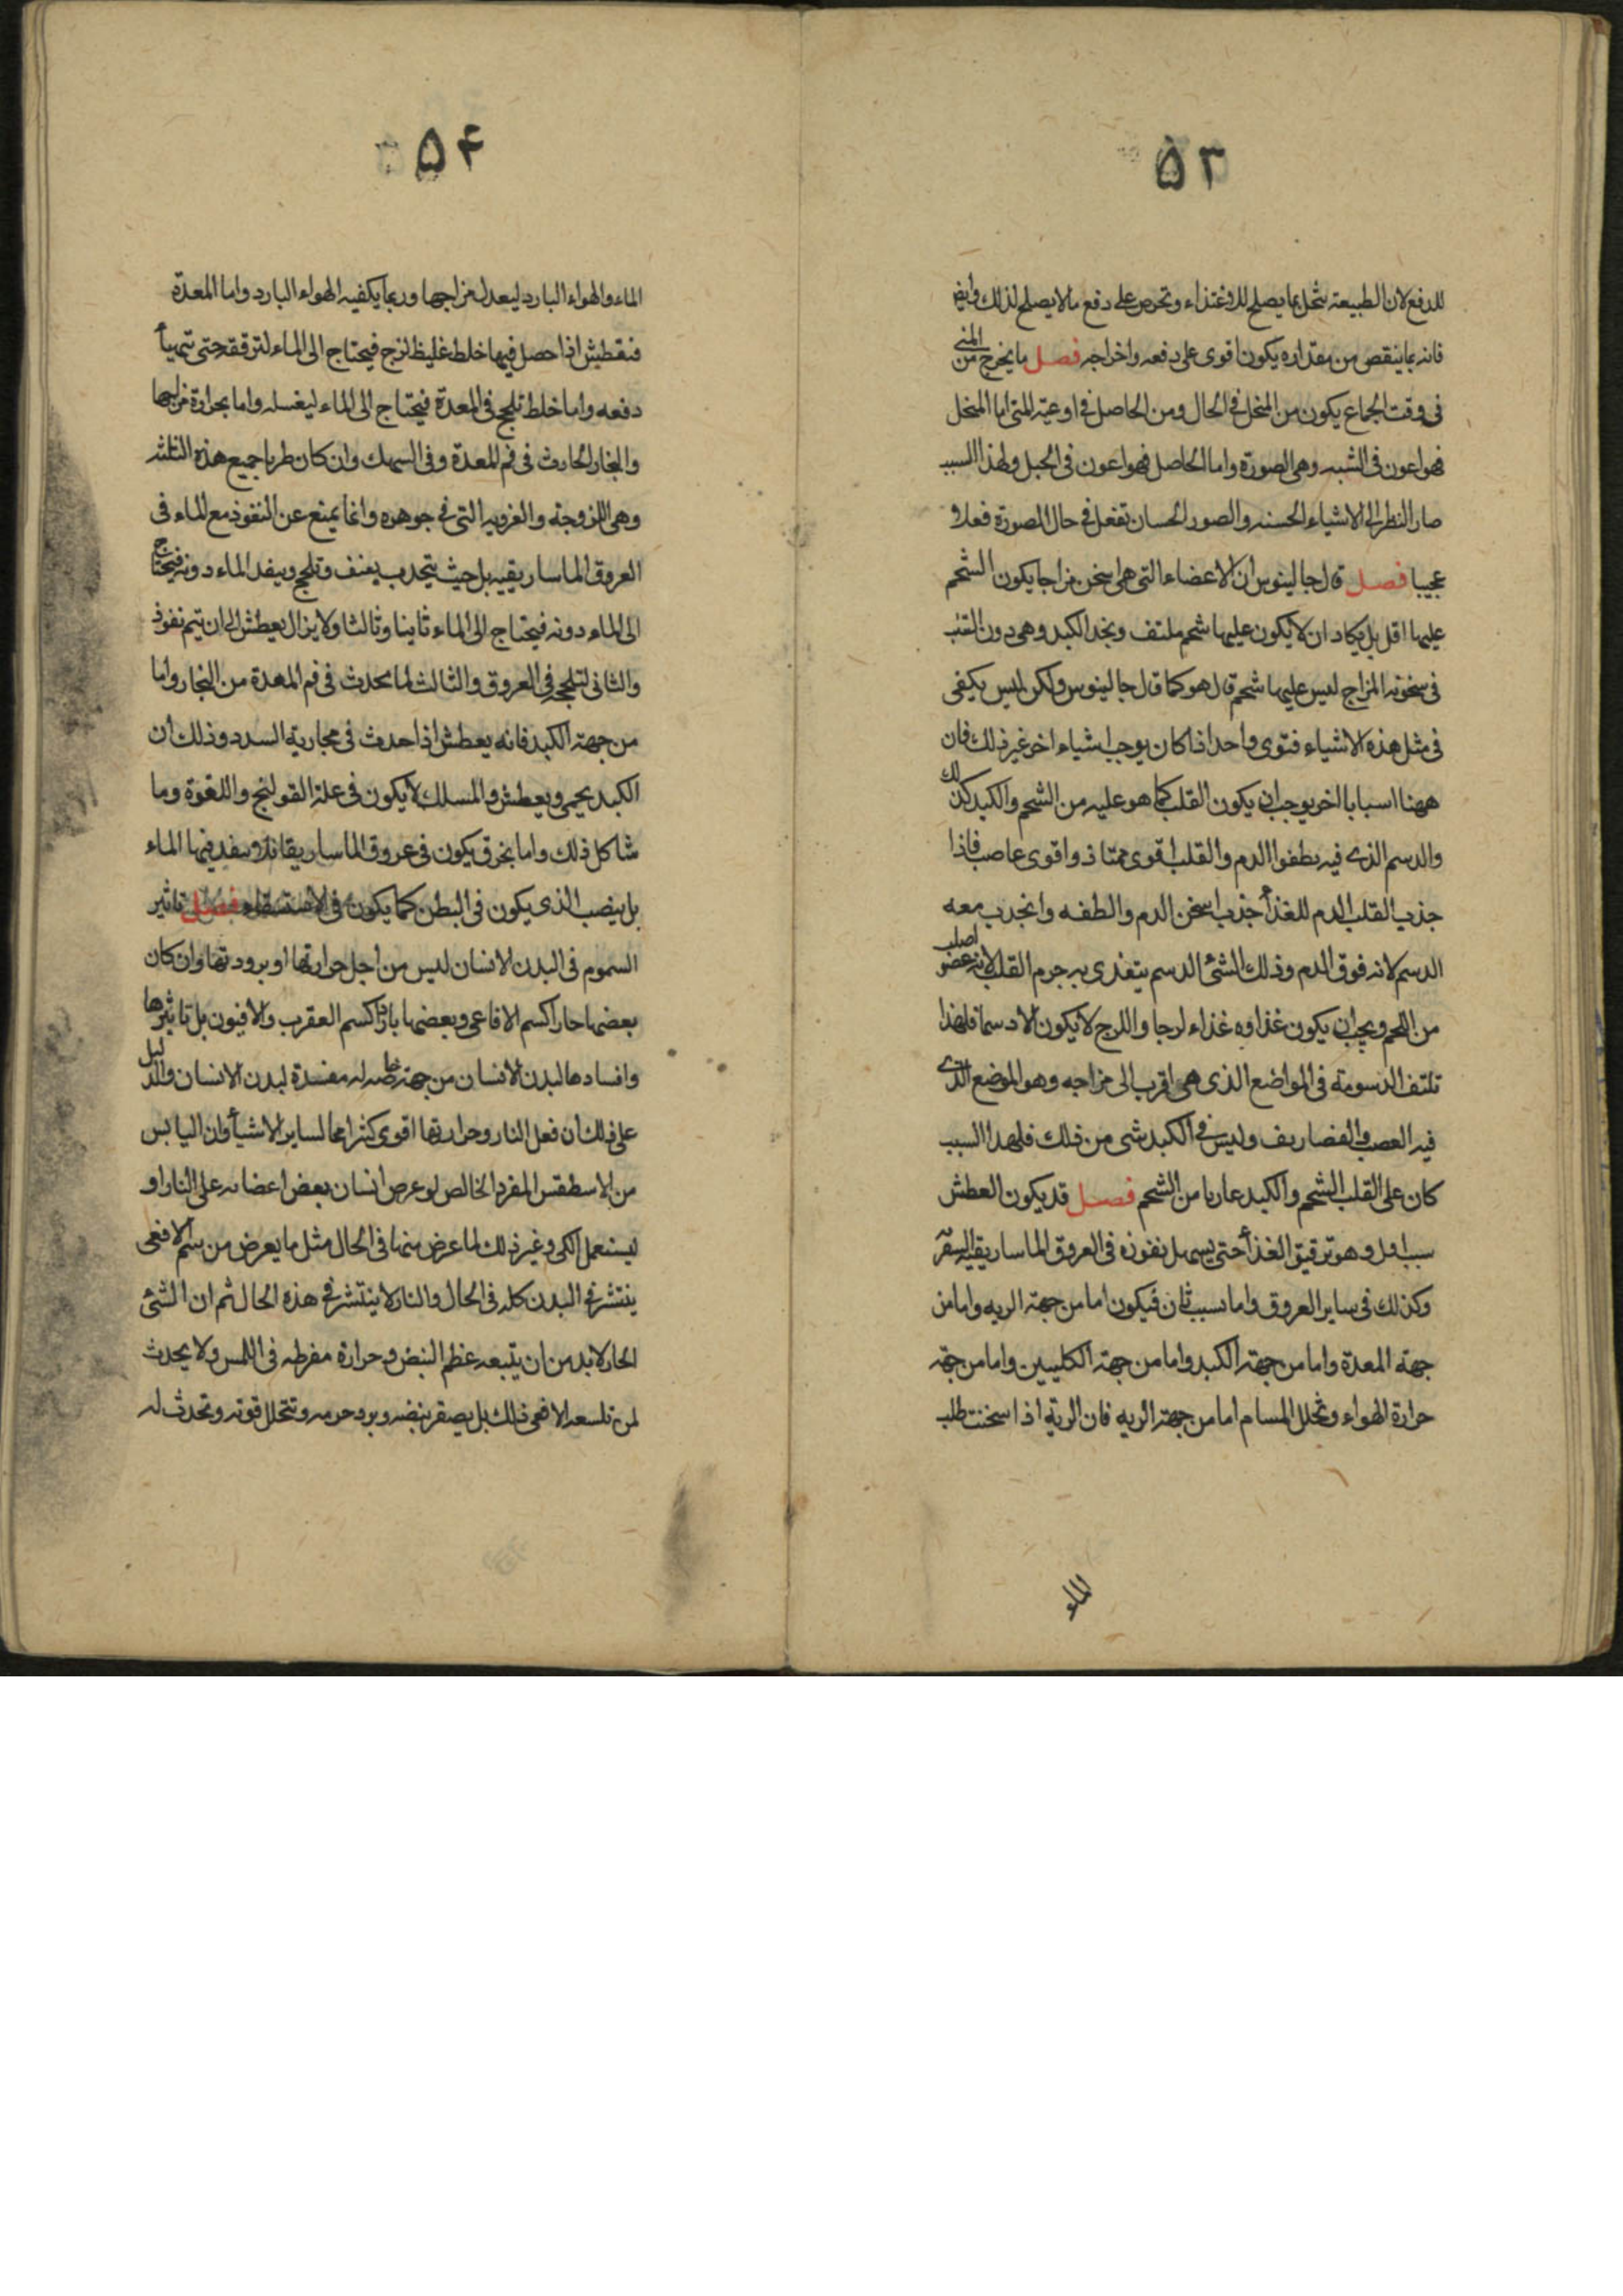 ٥٣
للدفع لان الطبيعة تبخل بما يصلح للاغتذاء وتحرص على دفع ما لا يصلح لذلك وايض
فانه بما ينقص من مقداره يكون اقوى على دفعه واخراجه فصل ما يخرج من المنى
فى وقت الجماع يكون من المنحل فى الحال ومن الحاصل فى اوعية المنى اما المنحل
فهو اعون فى الشبه وهى الصورة واما الحاصل فهو اعون فى الحبل ولهذا السبب
صار النظر الى الاشياء الحسنه والصور الحسان تفعل فى حال الصورة فعلا و
عجيبا فصل قال جالينوس ان الاعضاء التى هى اسخن مزاجا يكون الشحم
عليها اقل بل يكاد ان لا يكون عليها شحم ملتف ونجد الكبد وهى دون القلب
فى سخونه المزاج ليس عليها شحم قال هو كما قال جالينوس ولكن ليس يكفى
فى مثل هذه الاشياء فتوى واحد اذا كان يوجب اشياء اخر غير ذلك فان
ههنا اسبابا اخر يوجب ان يكون القلب كما هو عليه من الشحم والكبد كذلك
والدسم الذى فيه يطفوا الدم والقلب اقوى ممتاذ واقوى عاصب فاذا
جذب القلب الدم للغذأ جذب اسخن الدم والطفه وانجذب معه
الدسم لانه فوق الدم وذلك الشئ الدسم يتغذى به جرم القلب لانه عضو اصلب
من اللحم ويجب ان يكون غذاوه غذاء لزجا واللزج لا يكون الا دسما فلهذا
تلتف الدسومة فى المواضع الذى هى اقرب الى مزاجه وهو الموضع الذى
فيه العصب والغضاريف وليس فى الكبد شى من ذلك فلهذا السبب
كان على القلب الشحم والكبد عاريا من الشحم فصل قد يكون العطش
سبب اول وهو ترقيق الغذأ حتى يسهل نفوذه فى العروق الماساريقيه
وكذلك فى ساير العروق واما سبب ثان فيكون اما من جهة الريه واما من
جهة المعدة واما من جهة الكبد واما من جهة الكليتين واما من جهة
حرارة الهواء وتحلل المسام اما من جهة الريه فان الرية اذا سخنت طلب
الماء
٥۴
الماء والهواء البارد ليعدل مزاجها وربما يكفيه الهواء البارد واما المعدة
فتعطش اذا حصل فيها خلط غليظ لزج فيحتاج الى الماء لترققه حتى تتهيأ
دفعه واما خلط تلحج فى المعدة فيحتاج الى الماء ليغسله واما بحرارة مزاجها
والبخار الحادث فى فم المعدة وفى السمك وان كان طريا جميع هذه الثلثه
وهى اللزوجة والغرويه التى فى جوهره وانما يمنع عن النفوذ مع الماء فى
العروق الماساريقييه بل حيث يتجذب بعنف وتلحج وينفد الماء دونه فيحتاج
الى الماء دونه فيحتاج الى الماء ثانيا وثالثا ولا يزال يعطش الى ان يتم نفوذ
والثانى لتلحجه فى العروق والثالث لما يحدث فى فم المعدة من البخار واما
من جهة الكبد فانه يعطش اذا حدث فى مجاريه السدد وذلك ان
الكبد يحمى ويعطش والمسلك لا يكون فى علة القولنج واللقوة وما
شاكل ذلك واما بخرق يكون فى عروق الماساريقا فلا ينفد فيها الماء
بل ينصب الذى يكون فى البطن كما يكون فى الاستسقاء فصل تاثير
السموم فى البدن الانسان ليس من اجل حرارتها او برودتها وان كان
بعضها حارا كسم الافاعى وبعضها باردا كسم العقرب والافيون بل تاثيرها
وافسادها لبدن الانسان من جهة خاصه له مفسدة لبدن الانسان والدليل
على ذلك ان فعل النار وحرارتها اقوى كثيرا مما لساير الاشيأ وان اليابس
من الاسطقس المفرد الخالص لو عرض انسان بعض اعضايه على النار او
ليستعمل الكى وغير ذلك لما عرض منها فى الحال مثل ما يعرض من سم الافعى
ينتشر فى البدن كله فى الحال والنار لا ينتشر فى هذه الحال ثم ان الشئ
الحار لا بد من ان يتبعه عظم النبض وحرارة مفرطه فى اللمس ولا يحدث
لمن تلسعه الافعى ذلك بل يصغر نبضه ويبرد جرمه وتتحلل قوته وتحدث له